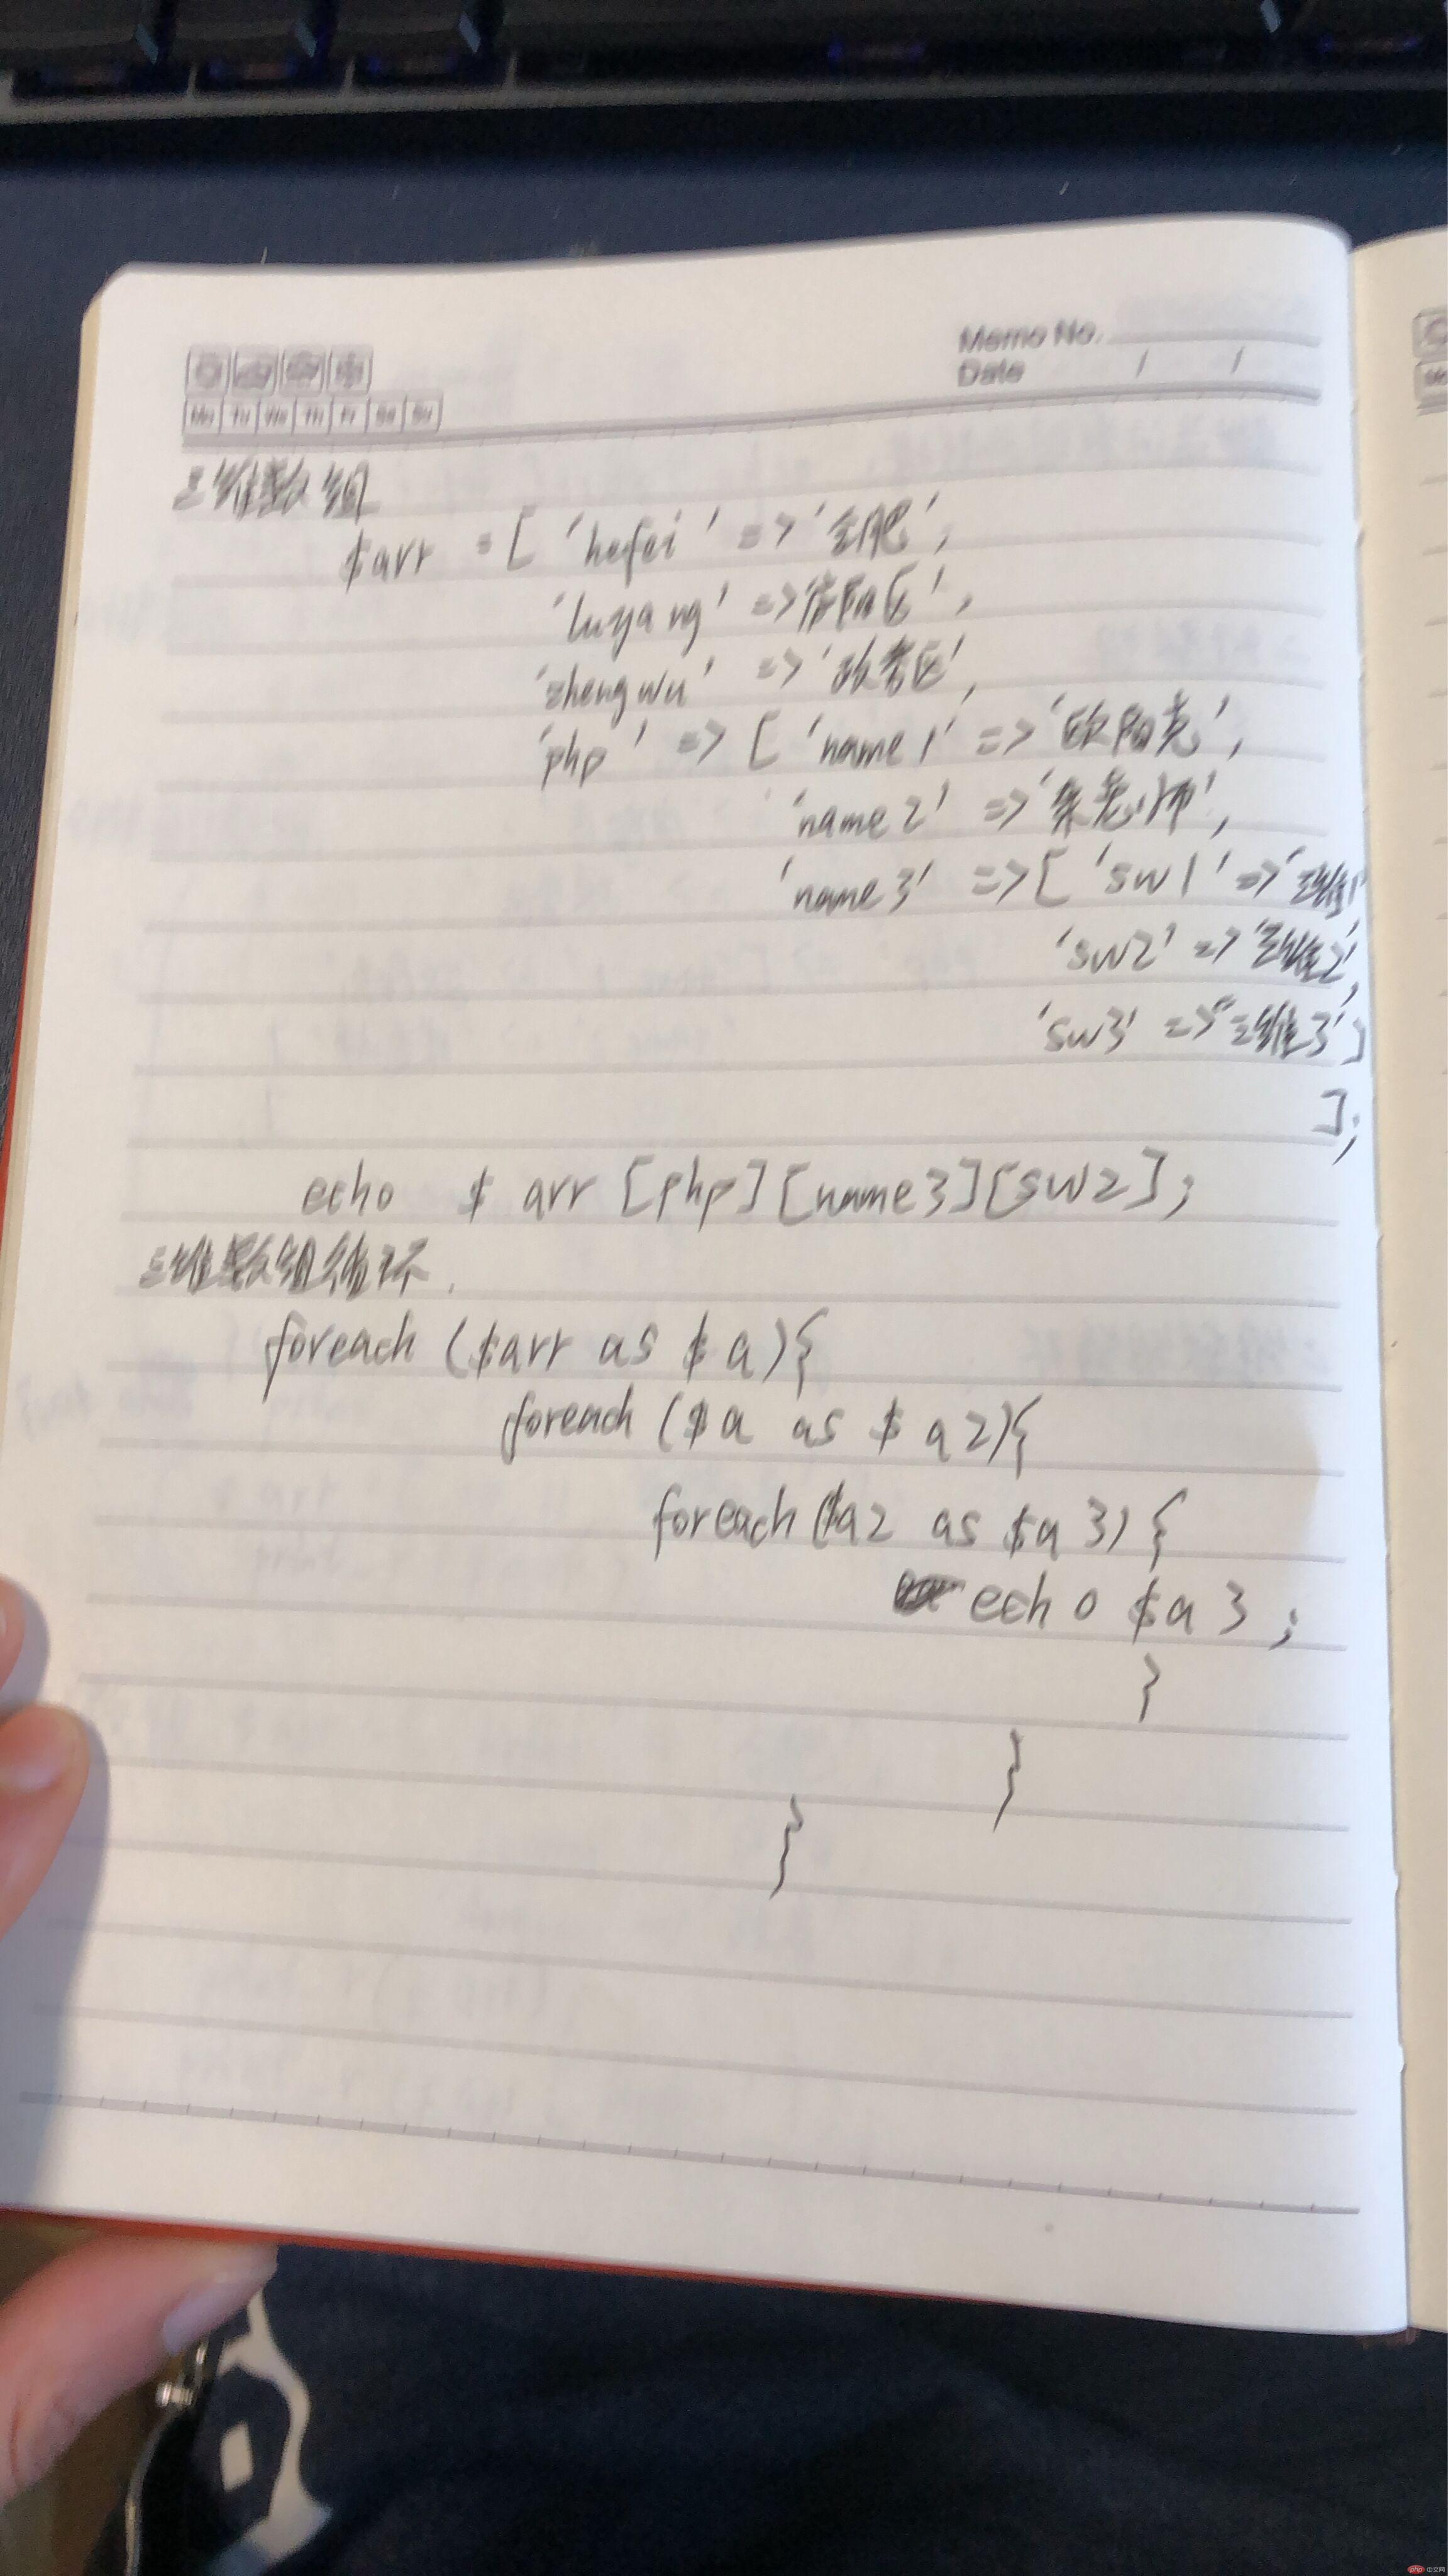 Memo No.
Date / /
Mo Tu We Th Fr Sa Su
三维数组
$arr = [ 'hefei' => '合肥',
'luyang' => 庐阳区',
'zhengwu' => '政务区',
'php' => [ 'name1' => '欧阳克',
'name2' => '朱老师',
'name3' => [ 'sw1' => '三维1'
'sw2' => '三维2',
'sw3' => '三维3' ]
];
echo $ arr [php][name3][sw2];
三维数组循环.
foreach ($arr as $ a){
foreach ($a as $ a2){
foreach ($a2 as $a 3) {
echo $a 3 ;
}
}
}
php 中文网